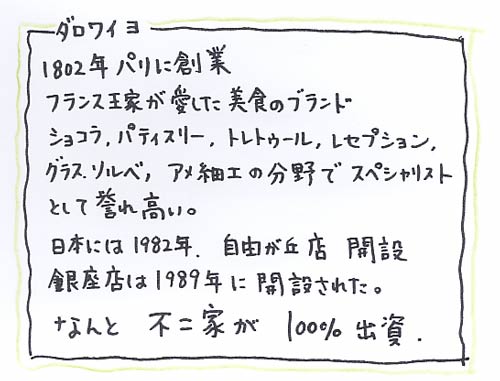 ダロワイヨ
1802年パリに創業
フランス王家が愛した美食のブランド
ショコラ, パティスリー, トレトゥール, レセプション,
グラス.ソルベ, アメ細工の分野でスペシャリスト
として誉れ高い。
日本には1982年. 自由が丘店 開設
銀座店は1989年に開設された。
なんと 不二家が 100% 出資.